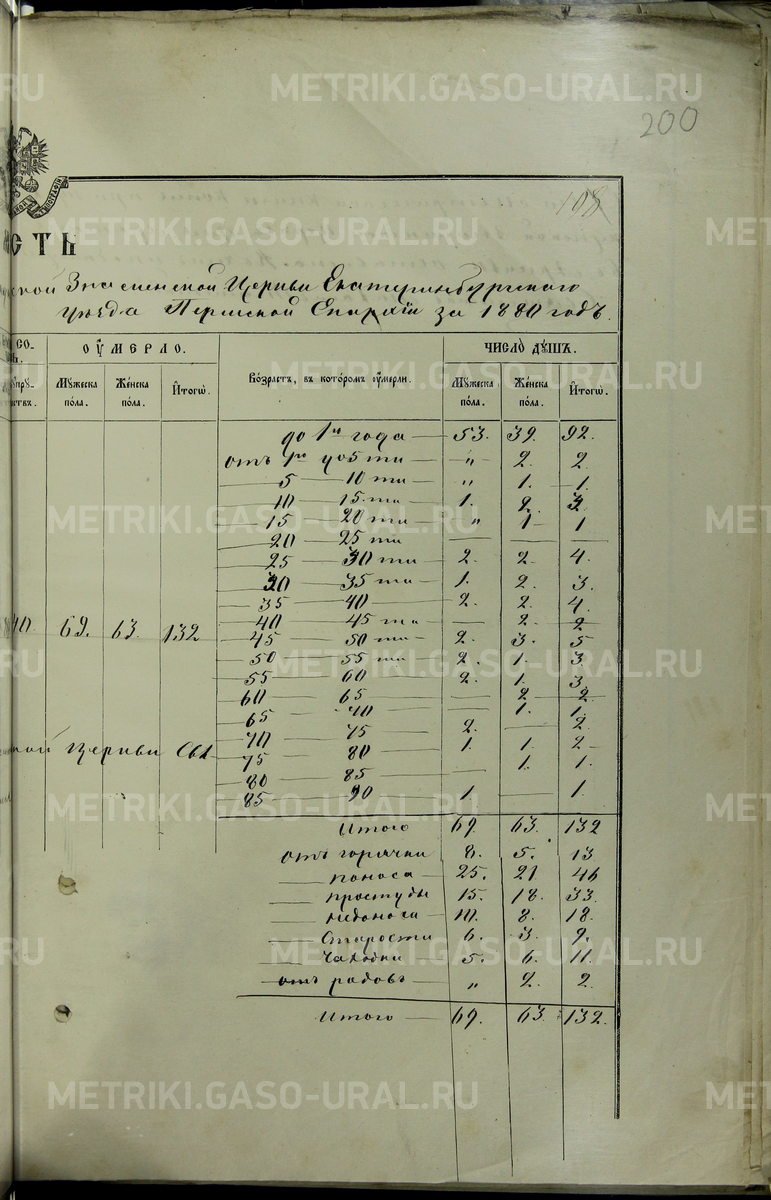 METRIKI.GASO-URAL.RU
200
108
СТЬ
ской Знаменской Церкви Екатеринбургскаго
уѣзда Пермской Епархіи за 1880 годъ.
СО- ОУМЕРЛО. ЧИСЛО ДУШЪ.
Мужеска пола. Женска пола. Итогѡ. Возрастъ, въ которомъ оумерли. Мужеска пола. Женска пола. Итогѡ.
до 1го года 53. 39. 92.
отъ 1го до 5 ти " 2. 2.
5 10 ти " 1. 1.
10 15 ти 1. 2. 3.
15 20 ти " 1 1
20 25 ти — — —
25 30 ти 2. 2. 4.
30 35 ти 1. 2. 3.
35 40 2. 2. 4.
40 45 ти — 2. 2
40. 69. 63. 132
45 50 ти 2. 3. 5
50 55 ти 2. 1. 3
55 60 2. 1. 3.
60 65 — 2 2
65 70 — 1. 1.
70 75 2. — 2
ной Церкви
75 80 1. 1. 2
80 85 — 1. 1.
85 90 1. — 1.
Итого 69. 63. 132
отъ горячки 8. 5. 13
— поноса 25. 21 46
— простуды 15. 18. 33.
— 10. 8. 18.
— Старости 6. 3. 9.
— Чахотки 5. 6. 11.
отъ родовъ " 2. 2.
Итого 69. 63. 132.